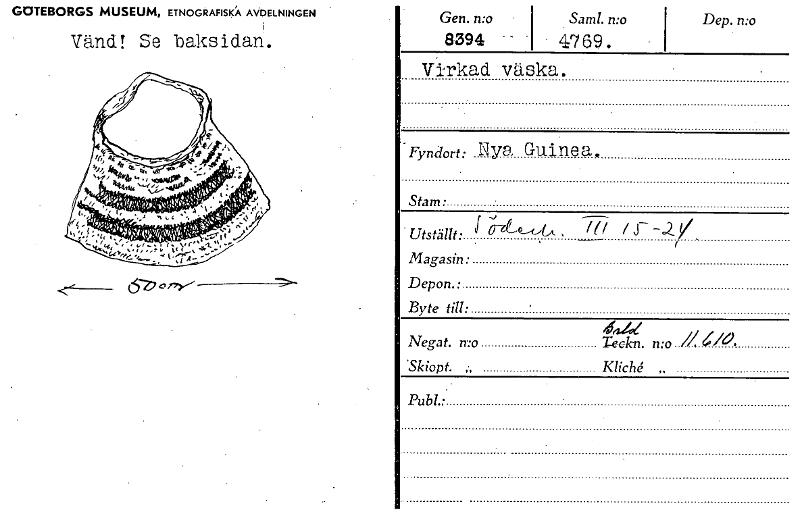 GÖTEBORGS MUSEUM, ETNOGRAFISKA AVDELNINGEN
Vänd! Se baksidan.
50 cm
Gen. n:o Saml. n:o Dep. n:o
8394 4769.
Virkad väska.
Fyndort: Nya Guinea.
Stam:
Utställt: III 15-24.
Magasin:
Depon.:
Byte till:
Bild
Negat. n:o Teckn. n:o 11.610.
Skiopt. „ Kliché „
Publ.: